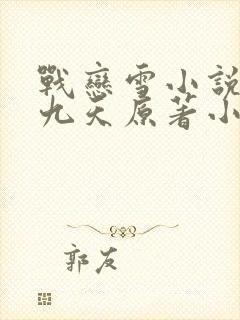 戰戀雪小說
九天原著小
郭友